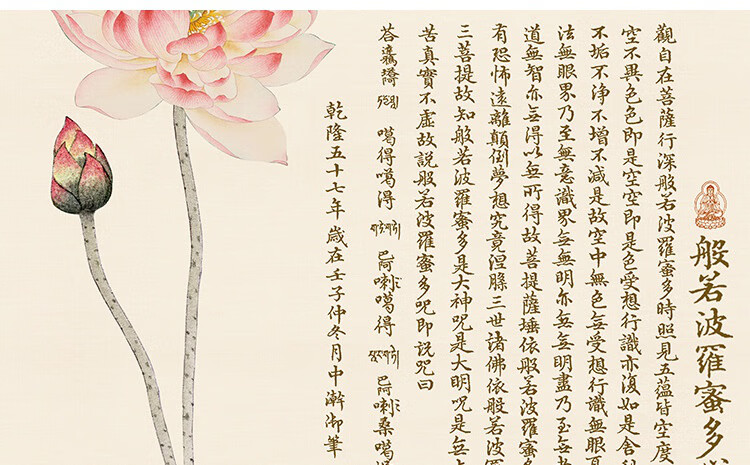 般若波羅蜜多
觀自在菩薩行深般若波羅蜜多時照見五蘊皆空度
空不異色色即是空空即是色受想行識亦復如是舍
不垢不淨不增不減是故空中無色無受想行識無眼
法無眼界乃至無意識界無無明亦無無明盡乃至無
道無智亦無得以無所得故菩提薩埵依般若波羅蜜多
有恐怖遠離顛倒夢想究竟涅槃三世諸佛依般若波羅
三菩提故知般若波羅蜜多是大神呪是大明呪是無
苦真實不虛故說般若波羅蜜多呪即說呪曰
答 噶得噶得 巴阿喇噶得 巴阿喇桑噶
乾隆五十七年歲在壬子仲冬月中澣御筆